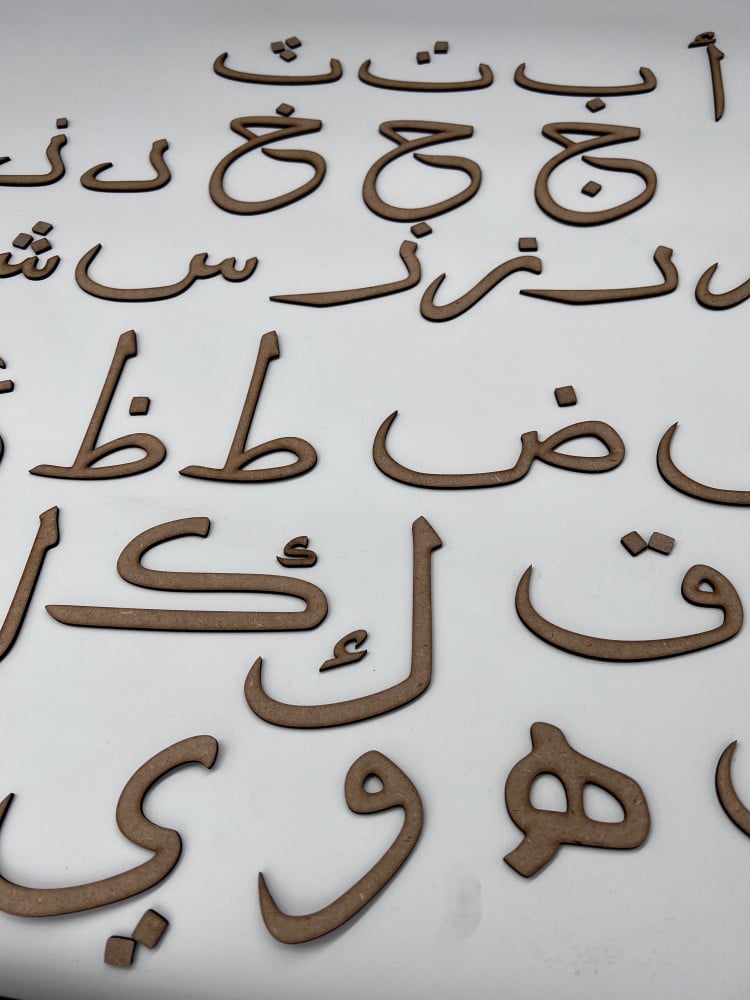 أ ب ت ث
ج ح خ د ذ
ر ز ز س ش
ض ط ظ
ق ك ك ل
ه و ي